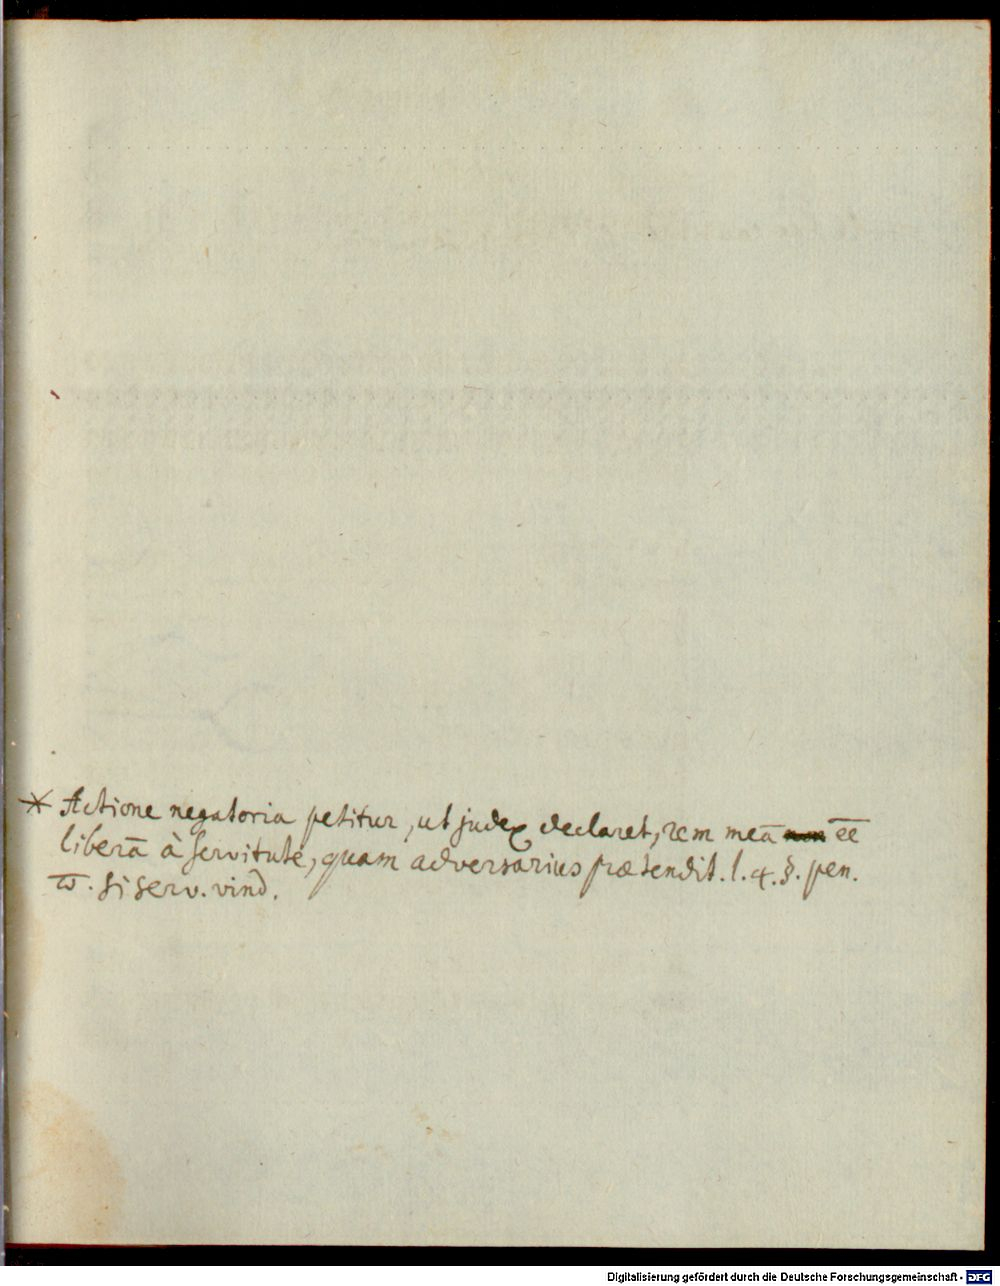 * Actione negatoria petitur, ut judex declaret, rem meā ee̅
liberā à servitute, quam adversarius prætendit. l. 4. §. pen.
ϖ. si serv. vind.
Digitalisierung gefördert durch die Deutsche Forschungsgemeinschaft - DFG